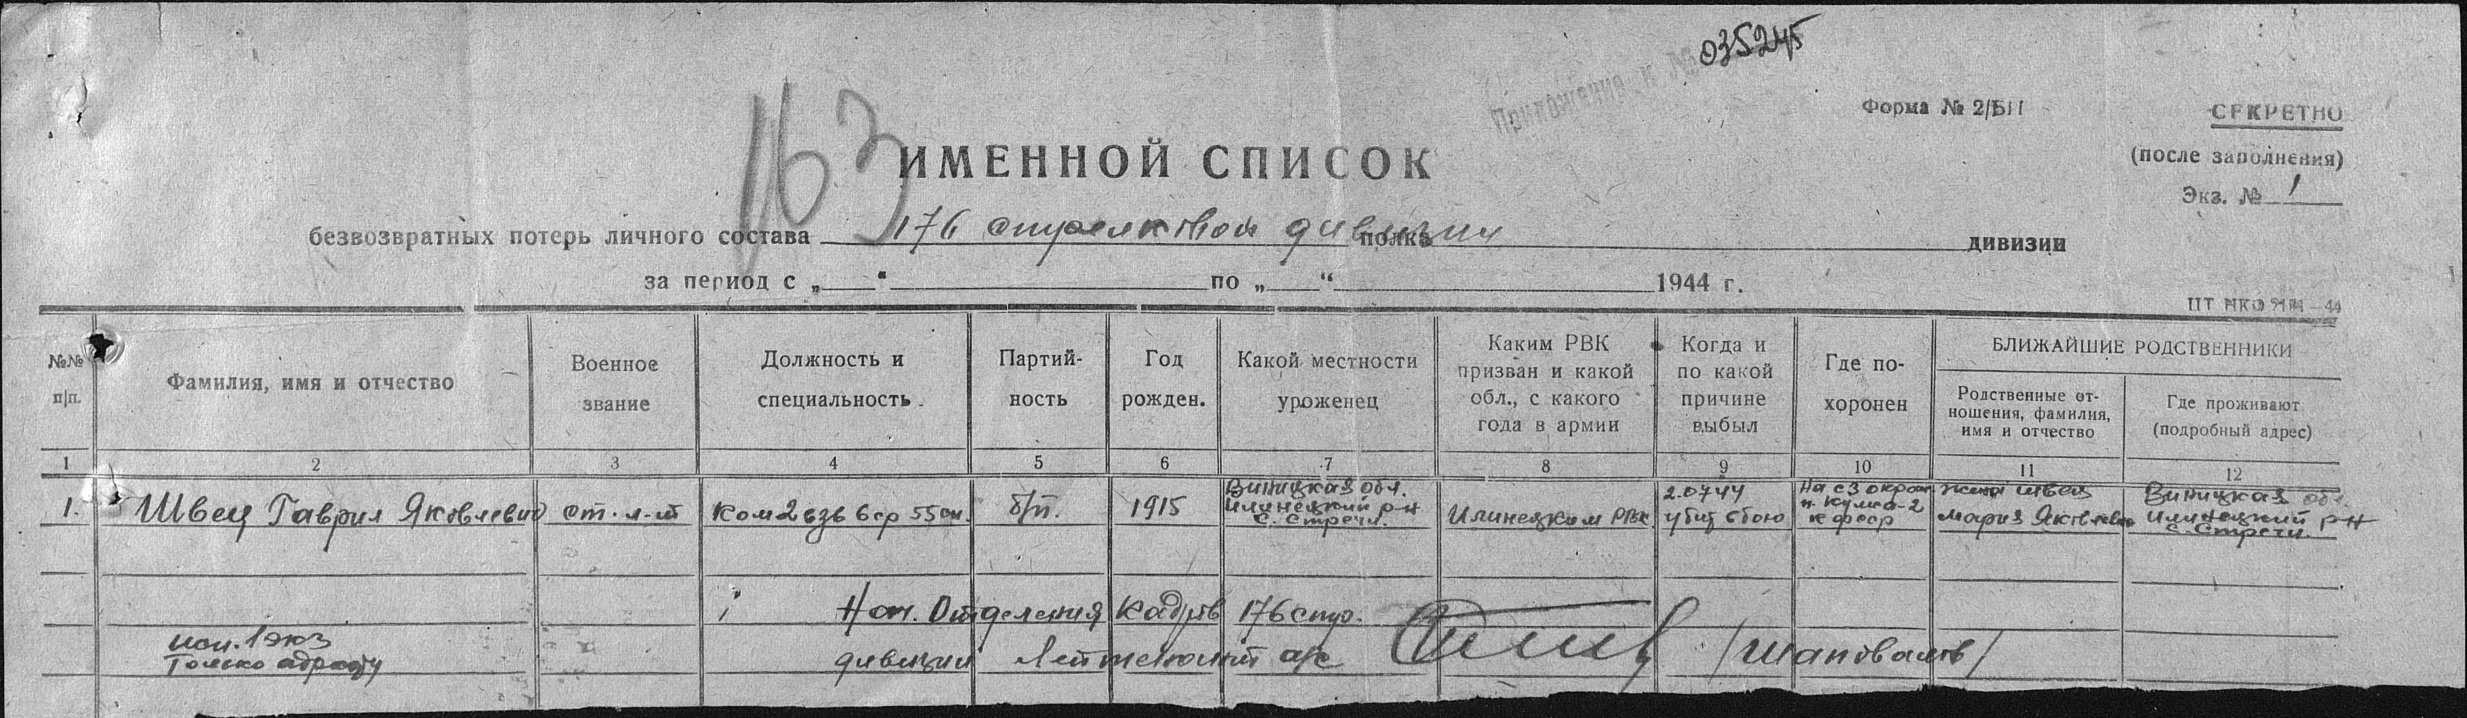 035245
Приложение к №
Форма № 2/БП
СЕКРЕТНО
(после заполнения)
Экз. № 1
163
ИМЕННОЙ СПИСОК
безвозвратных потерь личного состава 176 стрелковой дивизии полка дивизии
за период с „ “ по „ “ 1944 г.
ЦТ НКО 44
№№ п|п.
Фамилия, имя и отчество
Военное звание
Должность и специальность
Партий-
ность
Год рожден.
Какой местности уроженец
Каким РВК
призван и какой
обл., с какого
года в армии
Когда и
по какой
причине
выбыл
Где по-
хоронен
БЛИЖАЙШИЕ РОДСТВЕННИКИ
Родственные от-
ношения, фамилия,
имя и отчество
Где проживают
(подробный адрес)
1 2 3 4 5 6 7 8 9 10 11 12
1. Швец Гаврил Яковлевич
ст. л-т
Ком 2 взв 6 ср 55 сп.
б/п.
1915
Виницкая обл.
Илинецкий р-н
с. Стречи.
Илинецким РВК
2.07.44
убит в бою
На с з окраи
н. Кулма-2
к ф сср
жена Швец
Мария Яковлевна
Виницкая обл.
Илинецкий р-н
с. Стречи.
Нач. Отделения Кадров 176 стр.
дивизии Лейтенант а/с /Шаповалов/
исп. 1 экз
только адресату